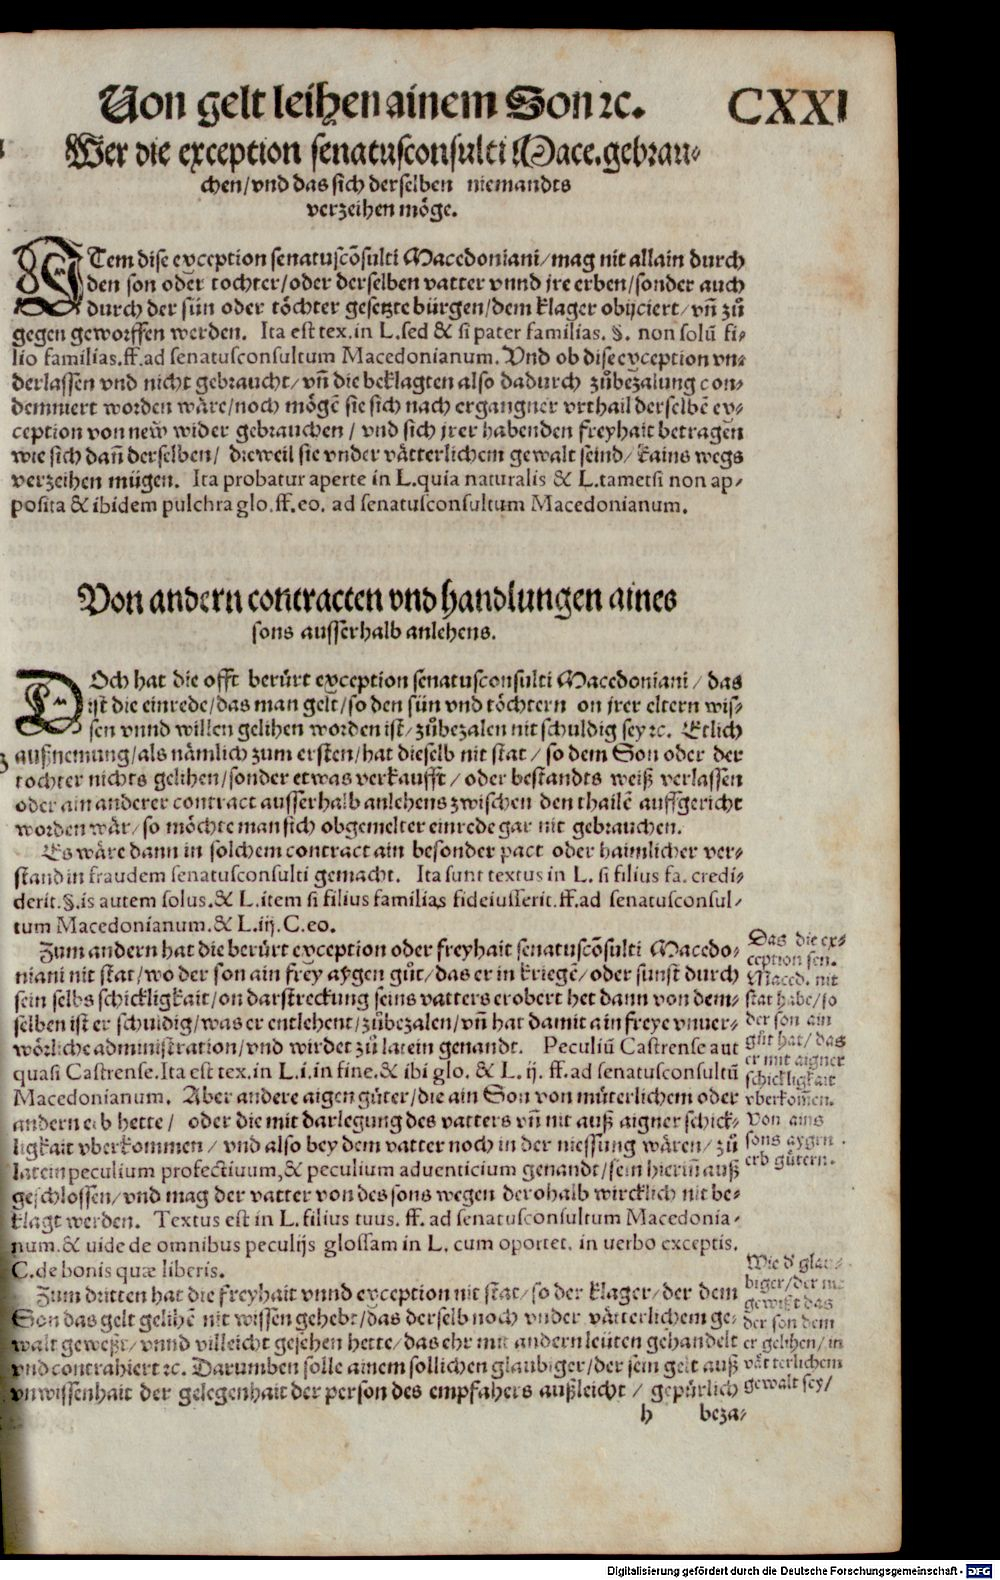 Von gelt leihen ainem Son ꝛc. CXXI
Wer die exception senatusconsulti Mace. gebrau⸗
chen/vnd das sich derselben niemandts
verzeihen möge.
ITem dise exception senatuscõsulti Macedoniani/mag nit allain durch
den son oder tochter/oder derselben vatter vnnd jre erben/sonder auch
durch der sün oder töchter gesetzte bürgen/dem klager obijciert/vñ zů
gegen geworffen werden. Ita est tex. in L. sed & si pater familias. §. non solū fi-
lio familias. ff. ad senatusconsultum Macedonianum. Vnd ob dise exception vn⸗
derlassen vnd nicht gebraucht/vñ die beklagten also dadurch zůbezalung con⸗
demniert worden wäre/noch mögẽ sie sich nach ergangner vrthail derselbẽ ex⸗
ception von new̃ wider gebrauchen/ vnd sich jrer habenden freyhait betragen
wie sich dañ derselben/ dieweil sie vnder vätterlichem gewalt seind/ kains wegs
verzeihen mügen. Ita probatur aperte in L. quia naturalis & L. tametsi non ap⸗
posita & ibidem pulchra glo. ff. eo. ad senatusconsultum Macedonianum.
Von andern contracten vnd handlungen aines
sons ausserhalb anlehens.
DOch hat die offt berürt exception senatusconsulti Macedoniani/ das
ist die einrede/das man gelt/so den sün vnd töchtern on jrer eltern wis⸗
sen vnnd willen gelihen worden ist/zůbezalen nit schuldig sey ꝛc. Etlich
außnemung/als nämlich zum ersten/hat dieselb nit stat/ so dem Son oder der
tochter nichts gelihen/sonder etwas verkaufft/ oder bestandts weiß verlassen
oder ain anderer contract ausserhalb anlehens zwischen den thailẽ auffgericht
worden wär/so möchte man sich obgemelter einrede gar nit gebrauchen.
Es wäre dann in solchem contract ain besonder pact oder haimlicher ver⸗
stand in fraudem senatusconsulti gemacht. Ita sunt textus in L. si filius fa. credi⸗
derit. §. is autem solus. & L. item si filius familias fideiusserit. ff. ad senatusconsul-
tum Macedonianum. & L. iij. C. eo.
Zum andern hat die berürt exception oder freyhait senatuscõsulti Macedo⸗
niani nit stat/wo der son ain frey aygen gůt/das er in kriegẽ/oder sunst durch
sein selbs schickligkait/on darstreckung seins vatters erobert het dann von dem⸗
selben ist er schuldig/was er entlehent/zůbezalen/vñ hat damit ain freye vnuer⸗
wörliche administration/vnd wirdet zů latein genandt. Peculiū Castrense aut
quasi Castrense. Ita est tex. in L. i. in fine. & ibi glo. & L. ij. ff. ad senatusconsultū
Macedonianum. Aber andere aigen güter/die ain Son von müterlichem oder
andern erb hette/ oder die mit darlegung des vatters vñ nit auß aigner schick⸗
ligkait vberkommen/ vnd also bey dem vatter noch in der niessung wären/ zů
latein peculium profectiuum, & peculium aduenticium genandt/sein hieriñ auß
geschlossen/vnd mag der vatter von des sons wegen derohalb wircklich nit be⸗
klagt werden. Textus est in L. filius tuus. ff. ad senatusconsultum Macedonia⸗
num. & uide de omnibus peculijs glossam in L. cum oportet. in uerbo exceptis.
C. de bonis quæ liberis.
Zum dritten hat die freyhait vnnd exception nit stat/so der klager/der dem
Son das gelt gelihẽ nit wissen gehebt/das derselb noch vnder vätterlichem ge⸗
walt geweßt/ vnnd villeicht gesehen hette/das ehr mit andern leüten gehandelt
vnd contrahiert ꝛc. Darumben solle ainem sollichen glaubiger/der sein gelt auß
vnwissenhait der gelegenhait der person des empfahers außleicht/ gepürlich
h beza⸗
Das die ex⸗
ception sen.
Maced. nit
stat habe/so
der son ain
gůt hat/das
er mit aigner
schickligkait
vberkom̃en.
Von ains
sons aygen
erb gütern.
Wie d' glau⸗
biger/der
gewißt das
der son dem
er gelihen/in
vätterlichem
gewalt sey/
Digitalisierung gefördert durch die Deutsche Forschungsgemeinschaft - DFG